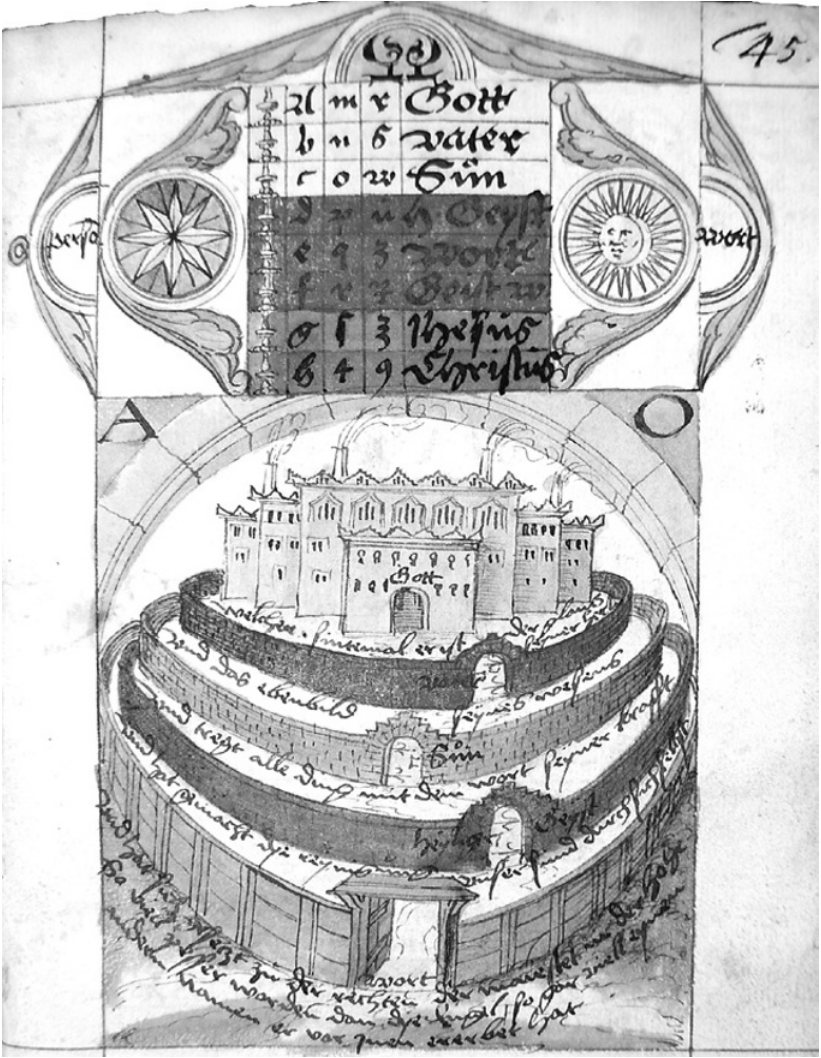 45.
A m r Gott
b n s vater
c o w Sůn
d p ü h. Geyst
e q z worte
f r z Geist w
g s z Jhesus
h 4 9 Christus
perso
wort
A O
Gott
welcher, sintemal er ist der glantz seyner
vater
und das ebenbild seynes wesens
Sůn
und tregt alle ding mit dem wort seyner krafft
heylig Geyst
und hat gemacht die unser sund durch sich selbst
wort
und hat sich gesetzt zu der rechten der maiestet in der hohe
So viel besser worden dan die engel, so gar viell eynen
andern namen er vor ynen ererbet hat